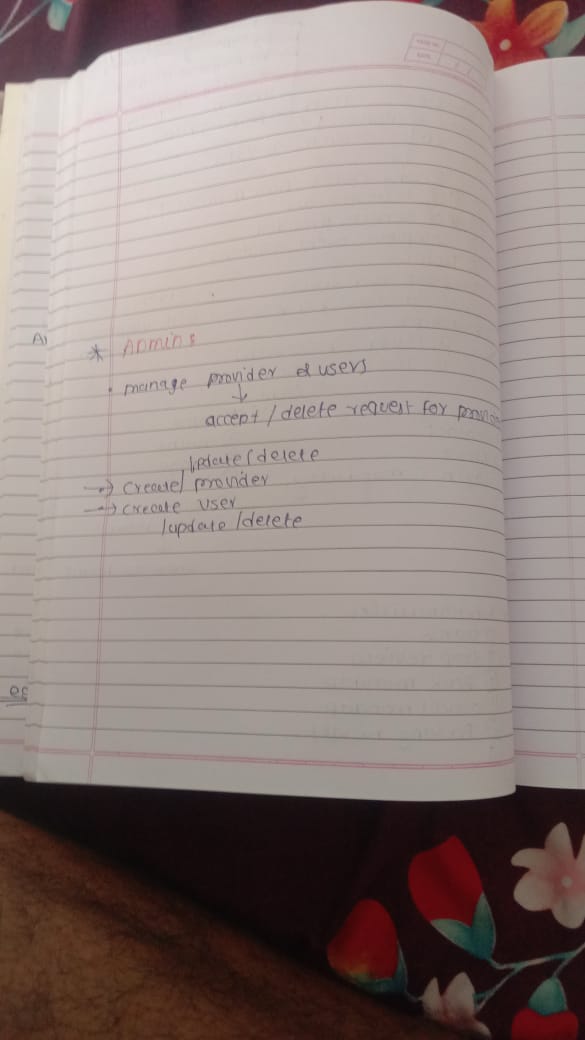 PAGE NO.
DATE
A
* ADMINS
• manage provider & users
↓
accept / delete request for
update / delete
→ create / provider
→ create user
/ update / delete